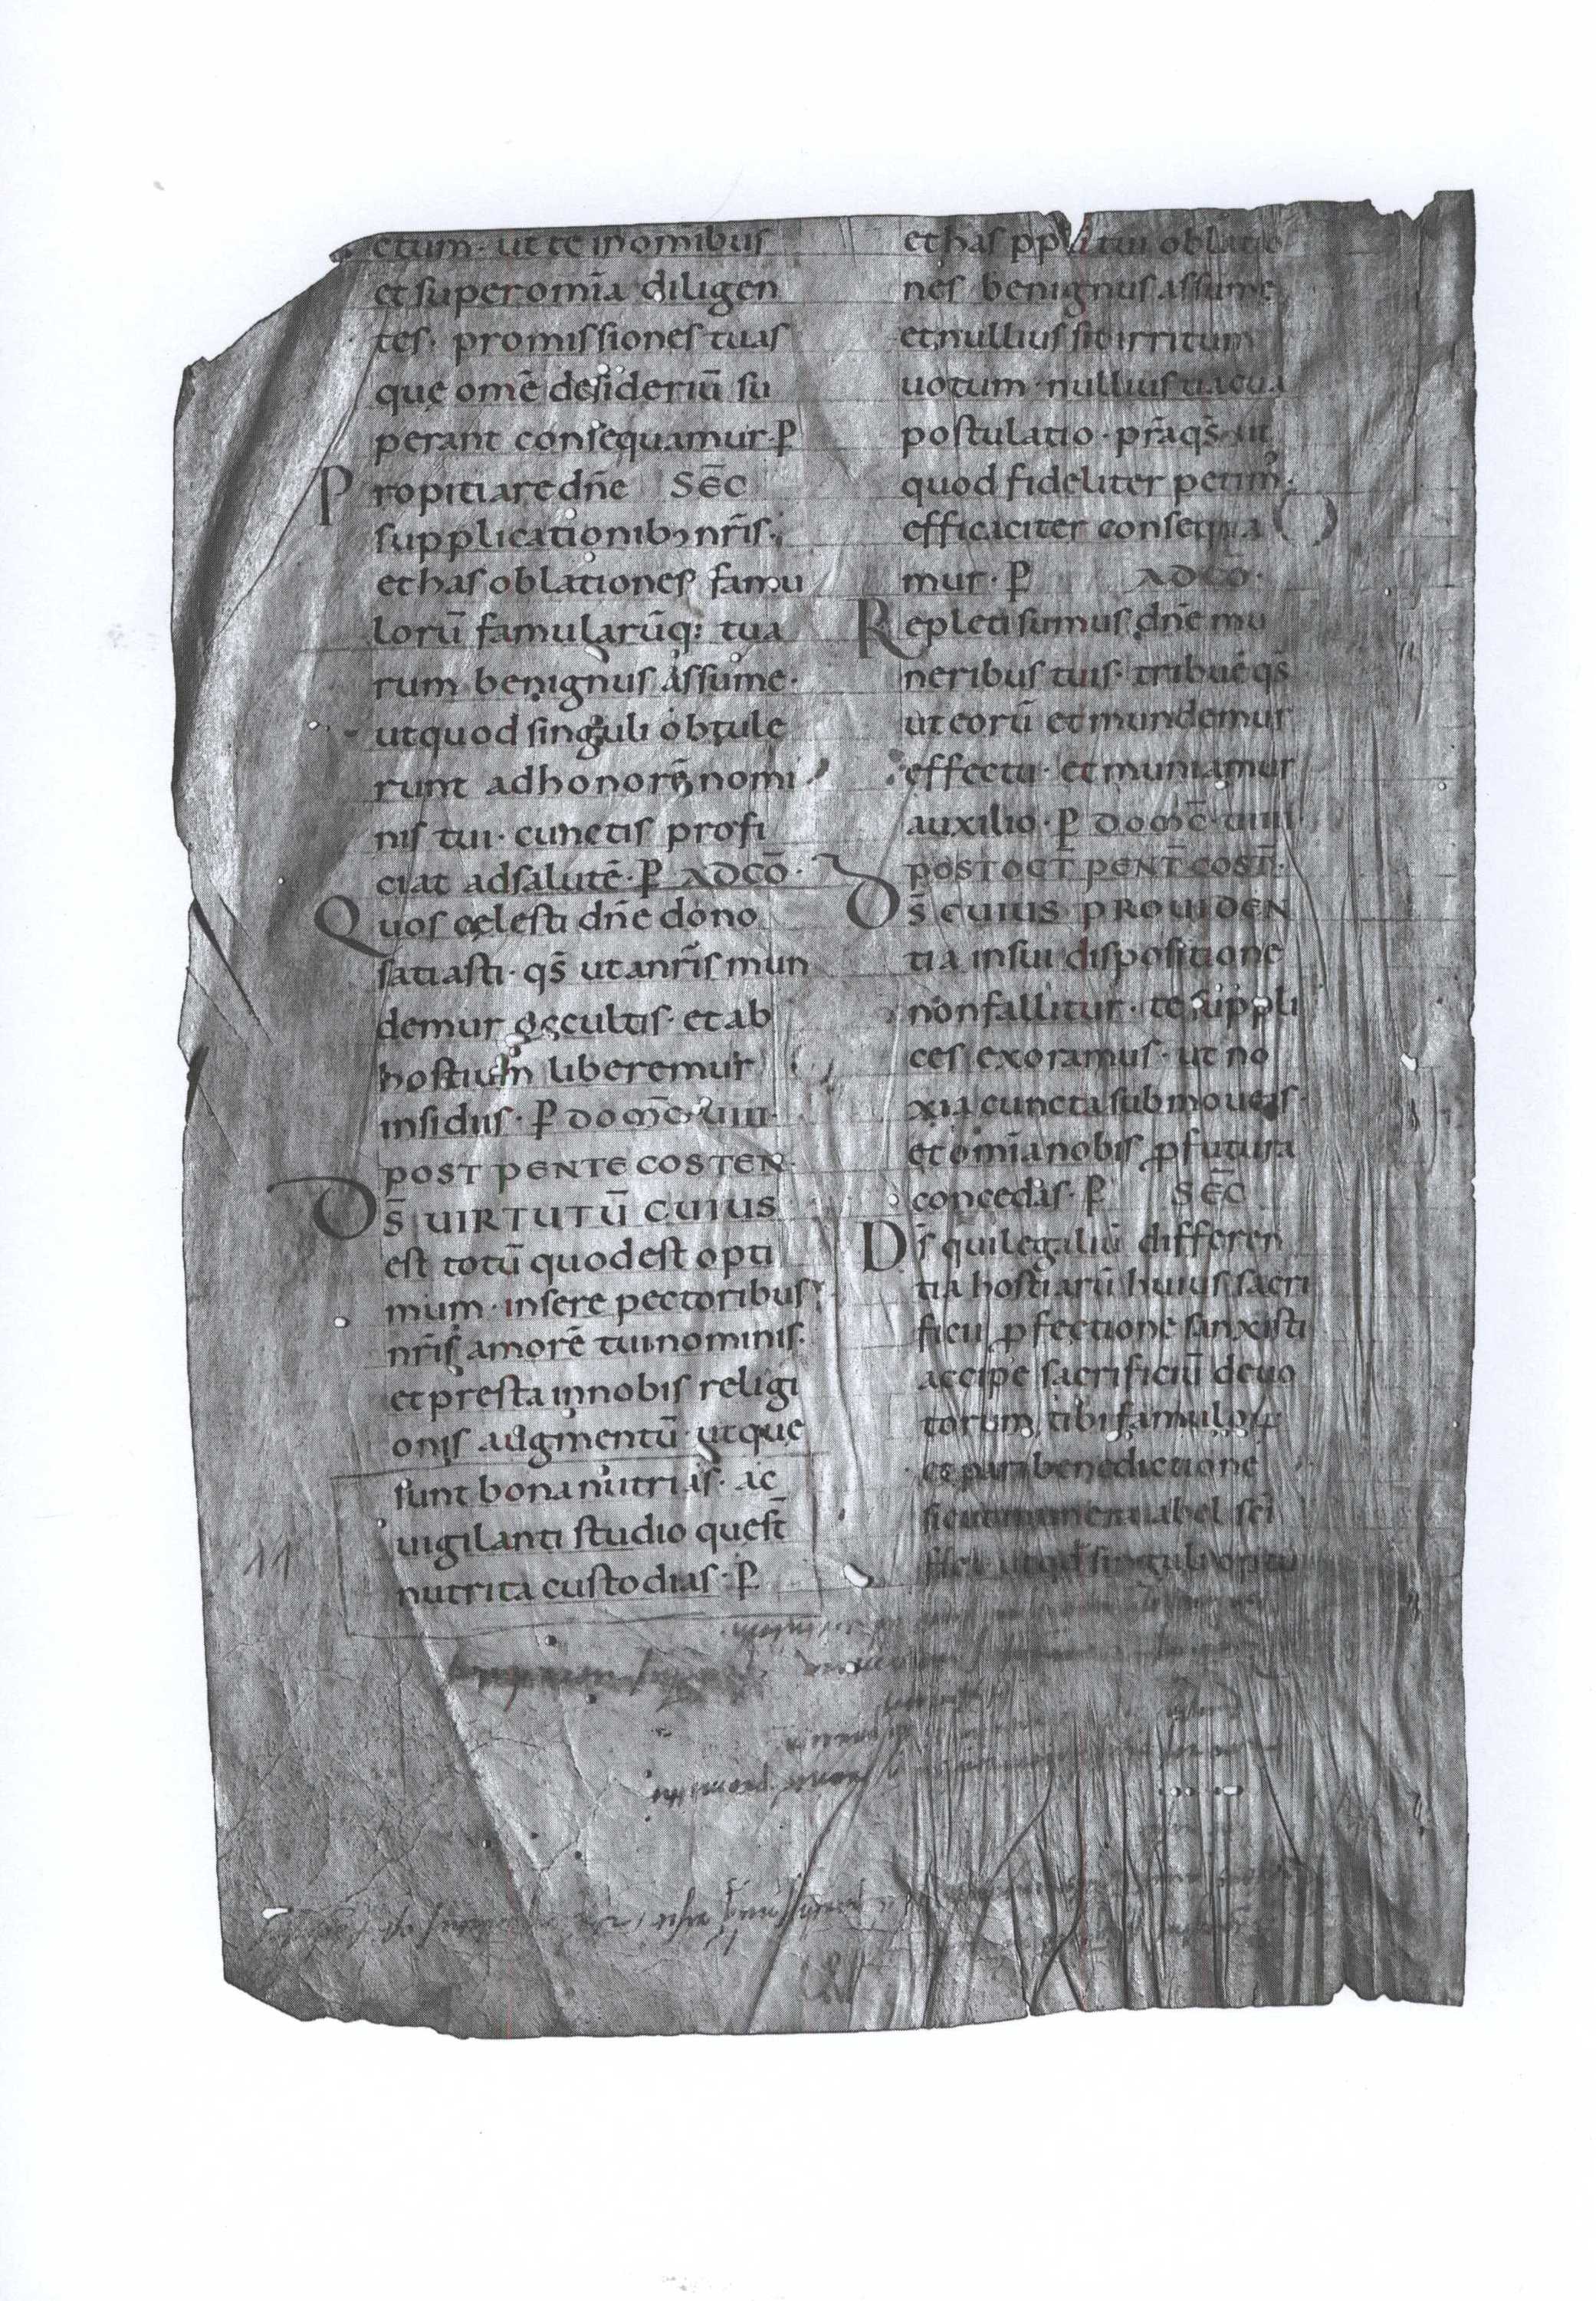 ctum · ut te in om̄ibus
et super om̄ia diligen
tes · promissiones tuas
quę om̄e desideriū su
perant consequamur · P̄
Propitiare dn̄e SEC̄
supplicationibꝫ nr̄is ·
et has oblationes famu
lorū famularūq: tua
rum benignus assume ·
ut quod singuli obtule
runt ad honorē nomi
nis tui · cunctis profi
ciat ad salutē · P̄ AD CŌ ·
Quos cęlesti dn̄e dono
satiasti · qs̄ ut a nr̄is mun
demur occultis · et ab
hostium liberemur
insidiis · P̄ DOM̄C · VIII ·
POST PENTECOSTEN ·
Ds̄ UIRTUTŪ CUIUS
est totū quod est opti
mum · insere pectoribus
nr̄is amorē tui nominis ·
et presta in nobis religi
onis augmentū · ut que
sunt bona nutrias · ac
uigilanti studio que st̄
nutrita custodias · P̄
11
et has ppli tui oblatio
nes benignus assume
et nullius sit irritum
uotum · nullius uacua
postulatio · pr̄a qs̄ · ut
quod fideliter petimꝰ ·
efficaciter consequa
mur · P̄ AD CŌ ·
Repleti sumus dn̄e mu
neribus tuis · tribue qs̄
ut eorū et mundemur
effectu · et muniamur
auxilio · P̄ DOM̄C · VIIII
POST OCT̄ PENT̄COST̄ ·
Ds̄ CUIUS PROUIDEN
tia in sui dispositione
non fallitur · te suppli
ces exoramus · ut no
xia cuncta submoueas ·
et om̄ia nobis ꝓfutura
concedas · P̄ SEC̄
Ds̄ qui legaliū differen
tia hostiarū huius sacri
ficii ꝑfectione sanxisti
accipe sacrificiū deuo
torum tibi famuloꝝ
et pari benedictione
sicut munera abel sc̄i
fica ut qd singuli optu